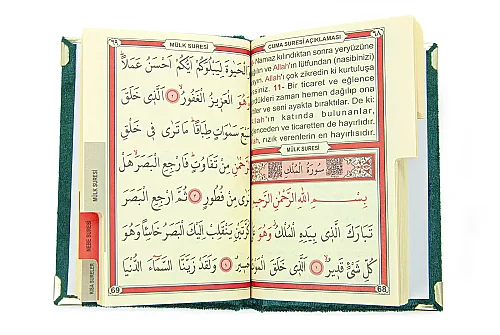 CUMA SURESİ AÇIKLAMASI ٦٨
Namaz kılındıktan sonra yeryüzüne
ğılın ve Allah'ın lütfundan (nasibinizi)
Allah'ı çok zikredin ki kurtuluşa
siniz. 11- Bir ticaret ve eğlence
dükleri zaman hemen dağılıp ona
ler ve seni ayakta bıraktılar. De ki:
Allah'ın katında bulunanlar,
enceden ve ticaretten de hayırlıdır.
lah, rızık verenlerin en hayırlısıdır.
MÜLK SURESİ
سُورَةُ الْمُلْكِ
بِسْمِ اللهِ الرَّحْمٰنِ الرَّحِيمِ
تَبَارَكَ الَّذِى بِيَدِهِ الْمُلْكُ وَهُوَ
كُلِّ شَىْءٍ قَدِيرٌ ﴿١﴾ اَلَّذِى خَلَقَ الْمَوْ
68
٦٩ MÜLK SURESİ
وَالْحَيٰوةَ لِيَبْلُوَكُمْ اَيُّكُمْ اَحْسَنُ عَمَلًا
وَهُوَ الْعَزِيزُ الْغَفُورُ ﴿٢﴾ اَلَّذِى خَلَقَ
سَبْعَ سَمٰوَاتٍ طِبَاقًا مَا تَرٰى فِى خَلْقِ
مِنْ تَفَاوُتٍ فَارْجِعِ الْبَصَرَ هَلْ
تَرٰى مِنْ فُطُورٍ ﴿٣﴾ ثُمَّ ارْجِعِ الْبَصَرَ
كَرَّتَيْنِ يَنْقَلِبْ اِلَيْكَ الْبَصَرُ خَاسِئًا وَهُوَ
حَسِيرٌ ﴿٤﴾ وَلَقَدْ زَيَّنَّا السَّمَاءَ الدُّنْيَا
69
MÜLK SURESİ
NEBE SURESİ
KISA SURELER